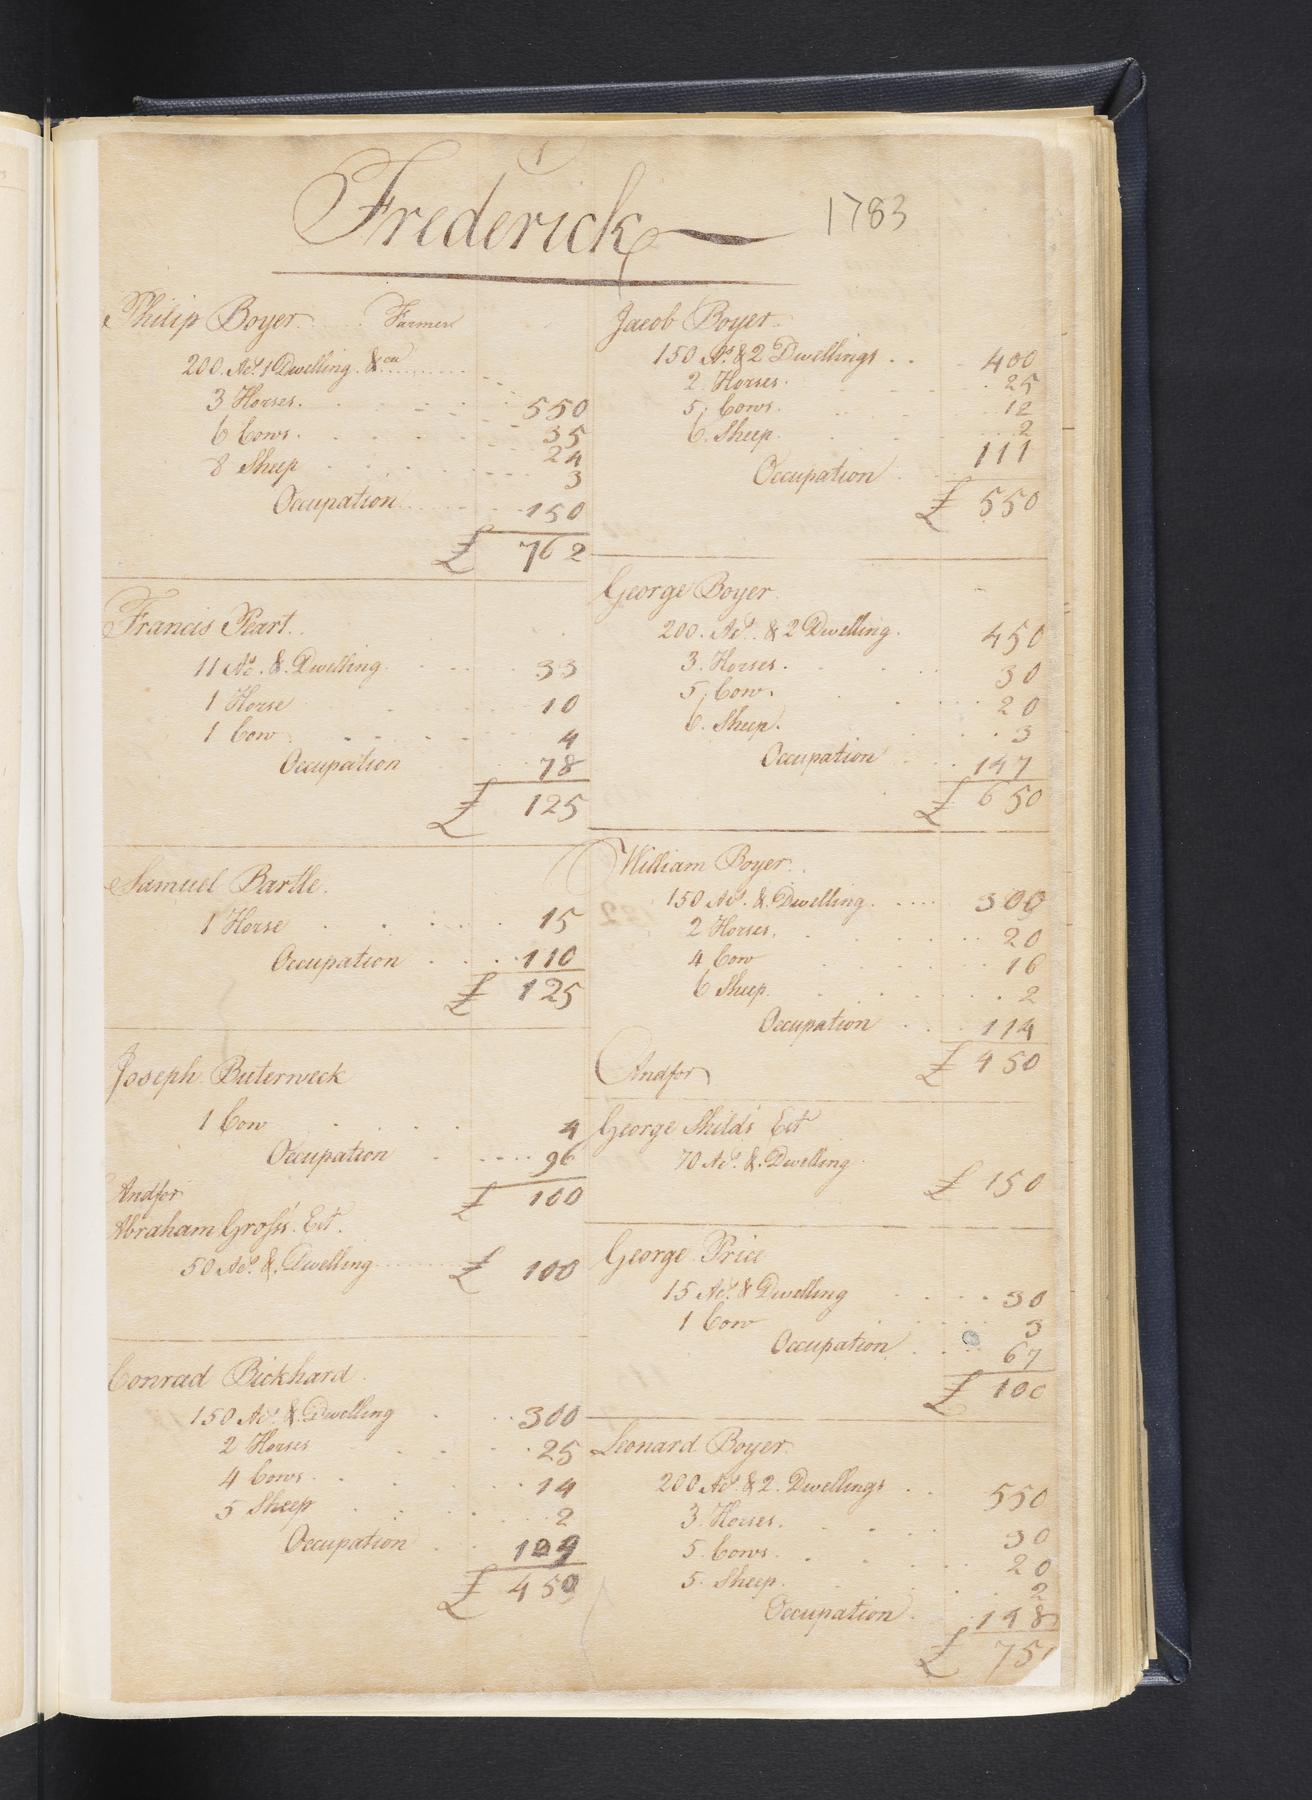 1
Frederick
1783
Philip Boyer Farmer
200 Acs. 1 Dwelling &ca
3 Horses 550
6 Cows 35
8 Sheep 24
3
Occupation 150
£ 762
Francis Peart
11 Acs. & Dwelling 33
1 Horse 10
1 Cow 4
Occupation 78
£ 125
Samuel Bartle
1 Horse 15
Occupation 110
£ 125
Joseph Buterweck
1 Cow 4
Occupation 96
£ 100
Andfor
Abraham Gross' Est.
50 Acs. & Dwelling £ 100
Conrad Bickhard
150 Acs. & Dwelling 300
2 Horses 25
4 Cows 14
5 Sheep 2
Occupation 109
£ 450
Jacob Boyer
150 As. & 2 Dwellings 400
2 Horses 25
5 Cows 12
6 Sheep 2
Occupation 111
£ 550
George Boyer
200 Acs. & 2 Dwelling 450
3 Horses 30
5 Cow 20
6 Sheep 3
Occupation 147
£ 650
William Boyer
150 Acs. & Dwelling 300
2 Horses 20
4 Cow 16
6 Sheep 2
Occupation 114
£ 450
Andfor
George Shilds' Est
70 Acs. & Dwelling
£ 150
George Price
15 Acs. & Dwelling 30
1 Cow 3
Occupation 67
£ 100
Leonard Boyer
200 Acs. & 2 Dwellings 550
3 Horses 30
5 Cows 20
5 Sheep 2
Occupation 148
£ 75